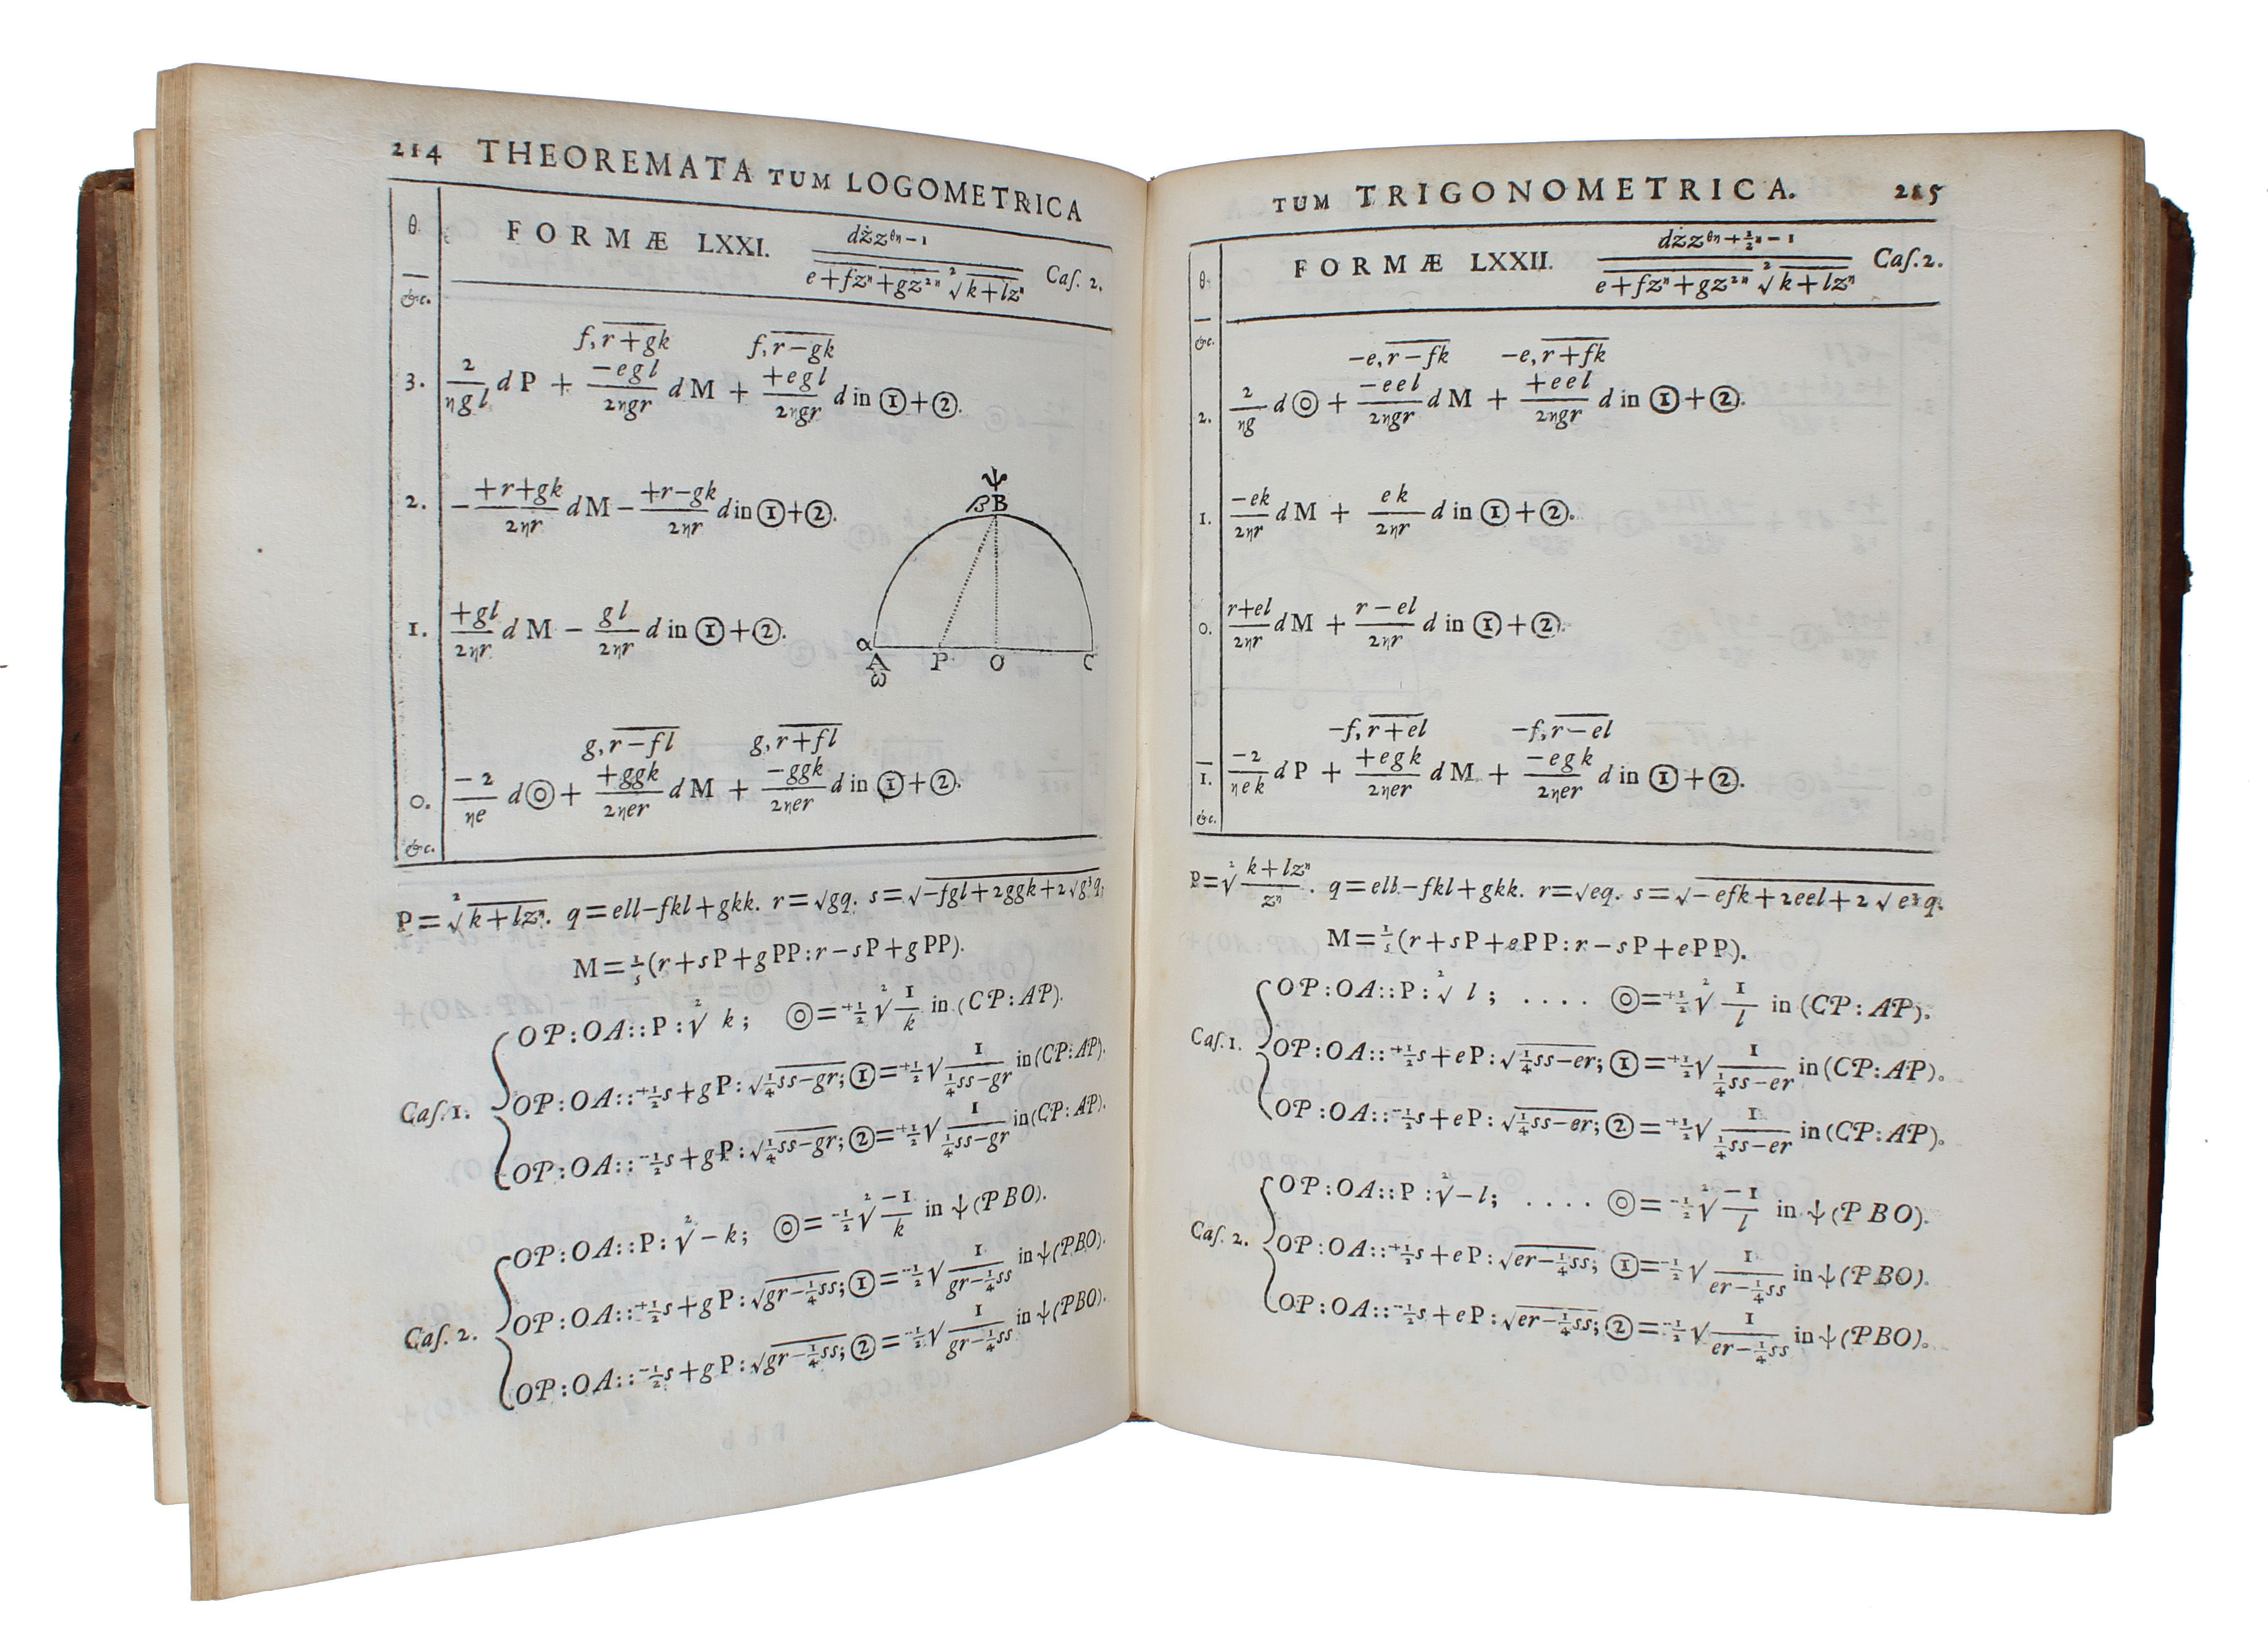 214 THEOREMATA TUM LOGOMETRICA
θ. FORMÆ LXXI. dżz^{θη−1} / (e+fz^η+gz^{2η} ²√k+lz^η) Caſ. 2.
&c.
f,r+gk f,r−gk
3. 2/ηgl dP + −egl/2ηgr dM + +egl/2ηgr d in ①+②.
2. − +r+gk/2ηr dM − +r−gk/2ηr d in ①+②.
ψ
βB
1. +gl/2ηr dM − gl/2ηr d in ①+②.
α
A P O C
ω
g,r−fl g,r+fl
0. −2/ηe d⊚ + +ggk/2ηer dM + −ggk/2ηer d in ①+②.
&c.
P=²√k+lz^η. q=ell−fkl+gkk. r=√gq. s=√−fgl+2ggk+2√g³q.
M=1/s (r+sP+gPP:r−sP+gPP).
Caſ. 1.
OP:OA::P:²√k; ⊚=+½ ²√1/k in (CP:AP).
OP:OA::+½s+gP:√¼ss−gr; ①=+½√1/¼ss−gr in (CP:AP).
OP:OA::−½s+gP:√¼ss−gr; ②=+½√1/¼ss−gr in (CP:AP).
Caſ. 2.
OP:OA::P:²√−k; ⊚=−½ ²√−1/k in ψ(PBO).
OP:OA::+½s+gP:√gr−¼ss; ①=−½√1/gr−¼ss in ψ(PBO).
OP:OA::−½s+gP:√gr−¼ss; ②=−½√1/gr−¼ss in ψ(PBO).
TUM TRIGONOMETRICA. 215
θ. FORMÆ LXXII. dżz^{θη+½η−1} / (e+fz^η+gz^{2η} ²√k+lz^η) Caſ. 2.
&c.
−e,r−fk −e,r+fk
2. 2/ηg d⊚ + −eel/2ηgr dM + +eel/2ηgr d in ①+②.
1. −ek/2ηr dM + ek/2ηr d in ①+②.
0. r+el/2ηr dM + r−el/2ηr d in ①+②.
−f,r+el −f,r−el
−1. −2/ηek dP + +egk/2ηer dM + −egk/2ηer d in ①+②.
&c.
P=²√k+lz^η/z^η. q=ell−fkl+gkk. r=√eq. s=√−efk+2eel+2√e³q.
M=1/s (r+sP+ePP:r−sP+ePP).
Caſ. 1.
OP:OA::P:²√l; .... ⊚=+½ ²√1/l in (CP:AP).
OP:OA::+½s+eP:√¼ss−er; ①=+½√1/¼ss−er in (CP:AP).
OP:OA::−½s+eP:√¼ss−er; ②=+½√1/¼ss−er in (CP:AP).
Caſ. 2.
OP:OA::P:²√−l; .... ⊚=−½ ²√−1/l in ψ(PBO).
OP:OA::+½s+eP:√er−¼ss; ①=−½√1/er−¼ss in ψ(PBO).
OP:OA::−½s+eP:√er−¼ss; ②=−½√1/er−¼ss in ψ(PBO).